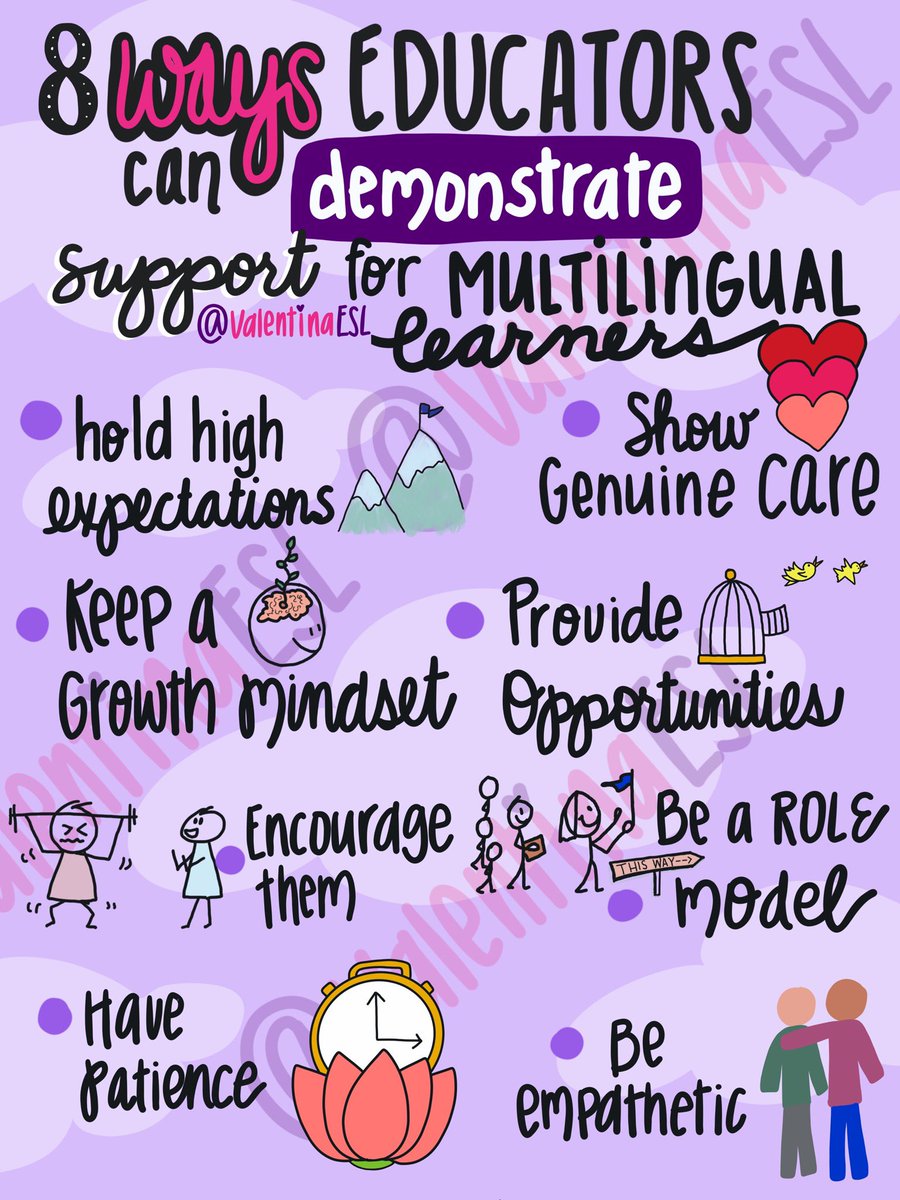 8 ways EDUCATORS
can demonstrate
support for MULTiLiNGUAL
@ValentinaESL learners
hold high
expectations
Show
Genuine Care
Keep a
Growth Mindset
Provide
Opportunities
Encourage
them
Be a ROLE
Model
THIS WAY-->
Have
Patience
Be
empathetic
@ValentinaESL
@ValentinaESL